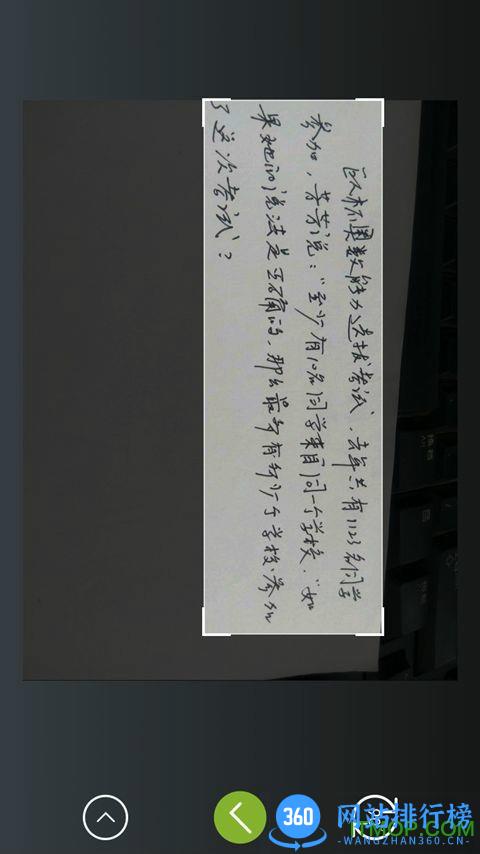 欧杯奥数能力选拔考试，去年共有1123名同学
参加，芳芳说：“至少有10名同学来自同一个学校。”如
果她的说法是正确的，那么最多有多少个学校参加
了这次考试？
360
网站排行榜
-WANGZHAN360.CN-